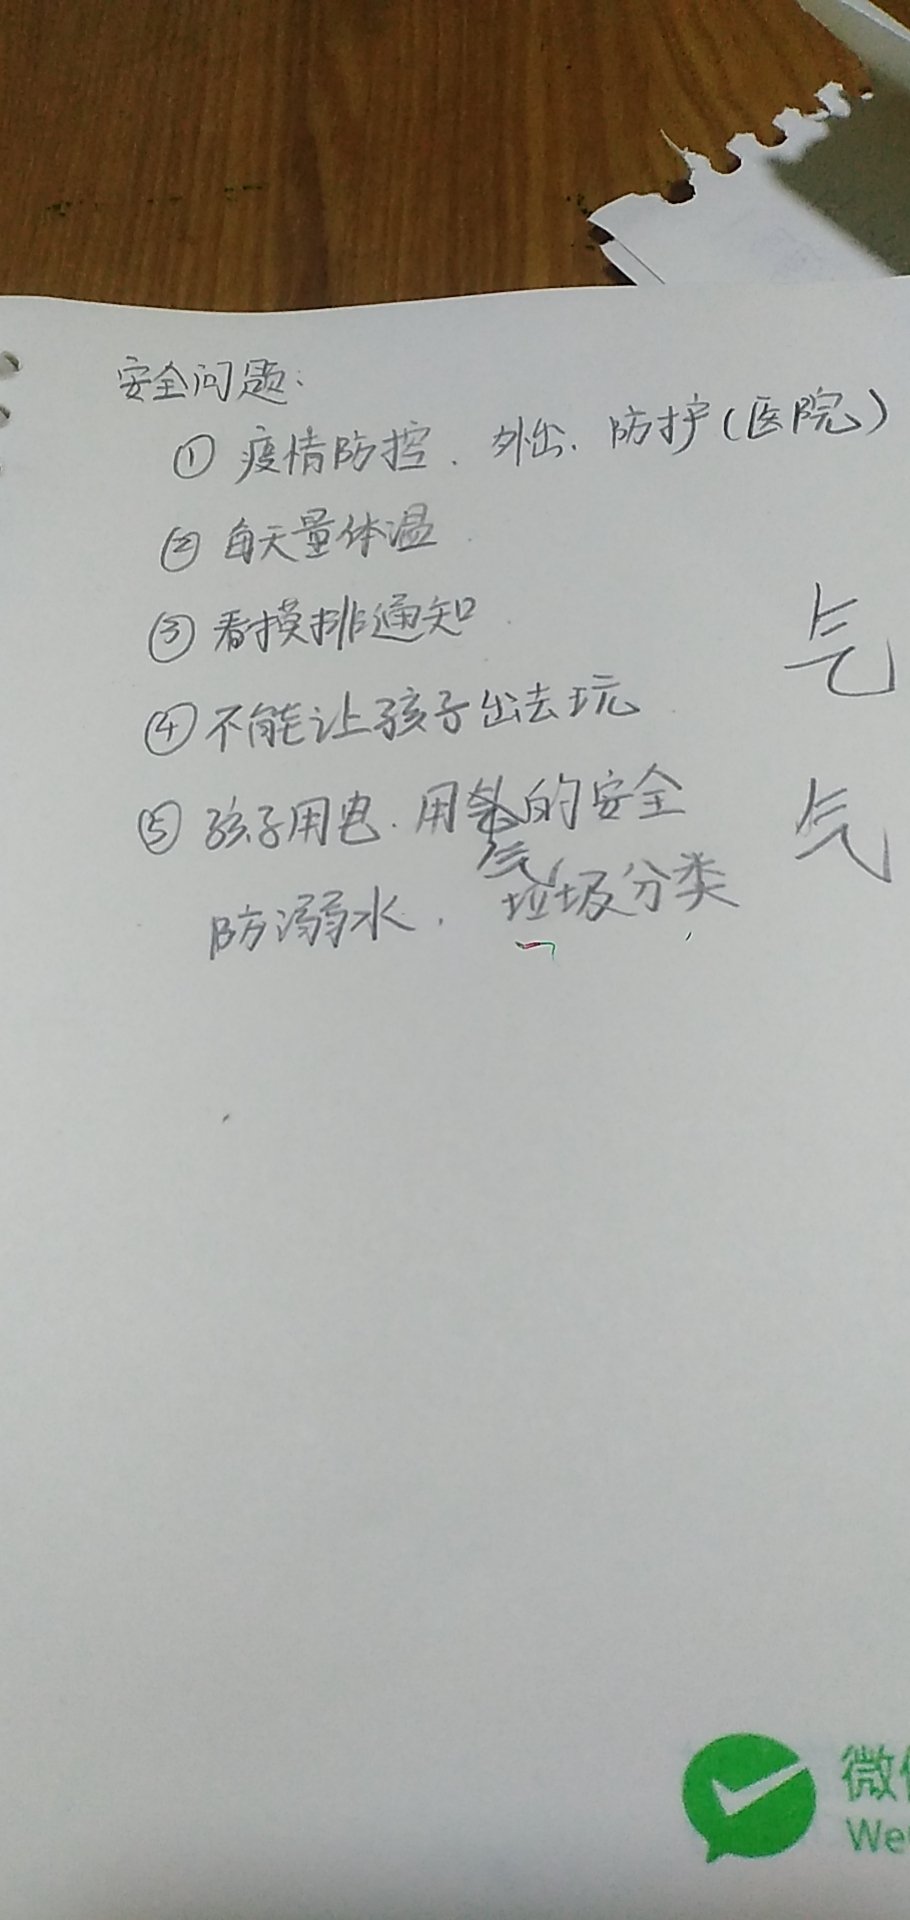 安全问题:
① 疫情防控. 外出. 防护(医院)
② 每天量体温
③ 看摸排通知
④ 不能让孩子出去玩
⑤ 孩子用电. 用气的安全
防溺水. 垃圾分类
气
气
微
We